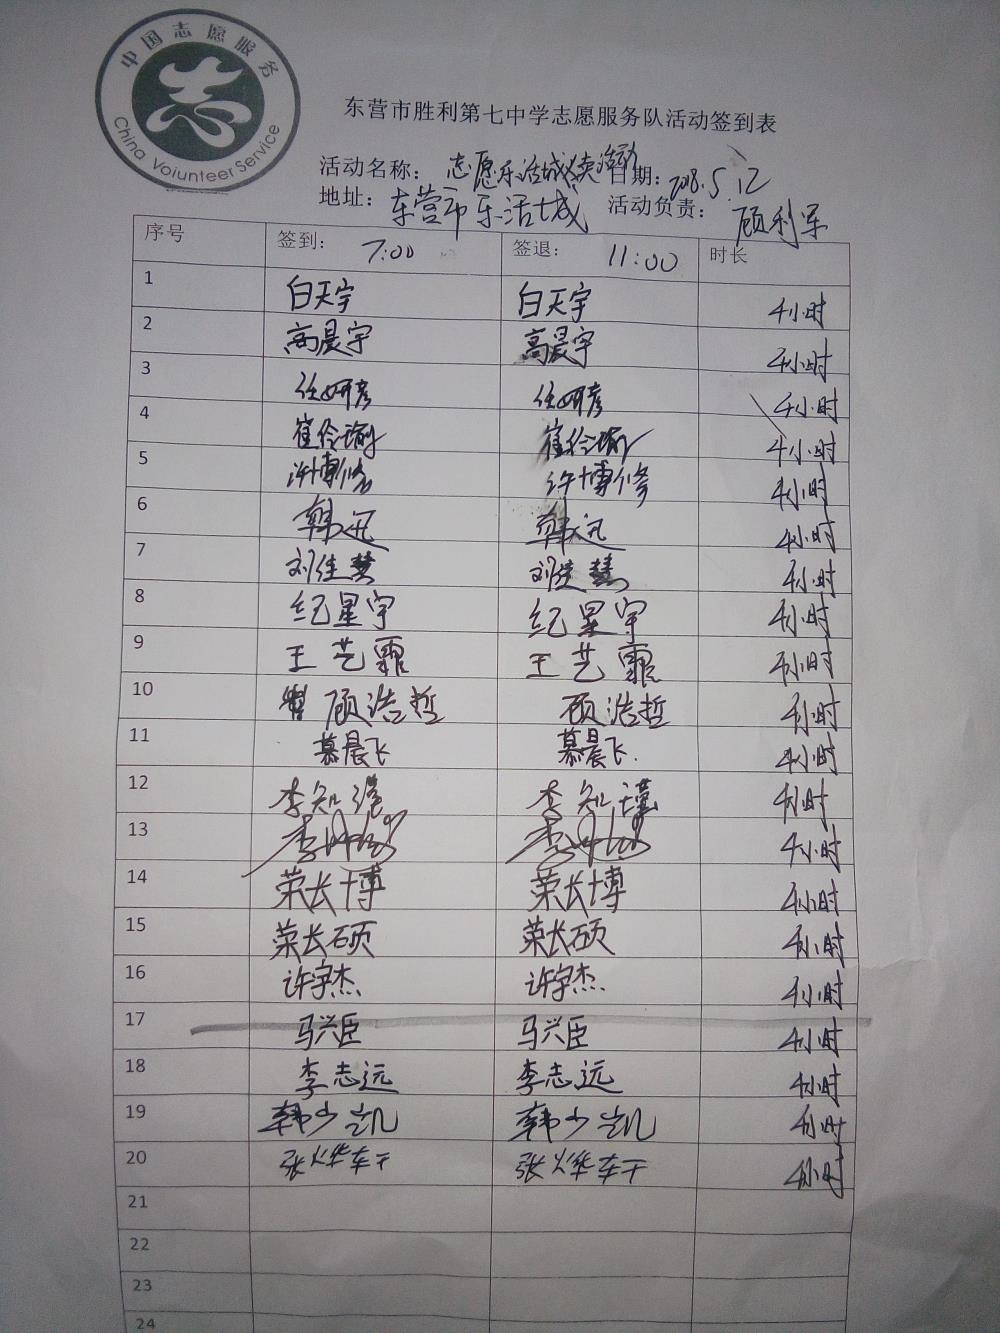 中国志愿服务
China Voiunteer Service
东营市胜利第七中学志愿服务队活动签到表
活动名称： 志愿乐活城 活动 日期：2018.5.12
地址： 东营市乐活城 活动负责： 顾利军
序号 签到： 7:00 签退： 11:00 时长
1 白天宇 白天宇 4小时
2 高晨宇 高晨宇 4小时
3 任妍彦 任妍彦 4小时
4 崔伶瑜 崔伶瑜 4小时
5 许博修 许博修 4小时
6 韩迅 韩迅 4小时
7 刘佳慧 刘佳慧 4小时
8 纪星宇 纪星宇 4小时
9 王艺霏 王艺霏 4小时
10 顾浩哲 顾浩哲 4小时
11 慕晨飞 慕晨飞. 4小时
12 李知瑾 李知瑾 4小时
13 李 李 4小时
14 荣长博 荣长博 4小时
15 荣长硕 荣长硕 4小时
16 许宇杰 许宇杰 4小时
17 马兴臣 马兴臣 4小时
18 李志远 李志远 4小时
19 韩少凯 韩少凯 4小时
20 张烨轩 张烨轩 4小时
21
22
23
24